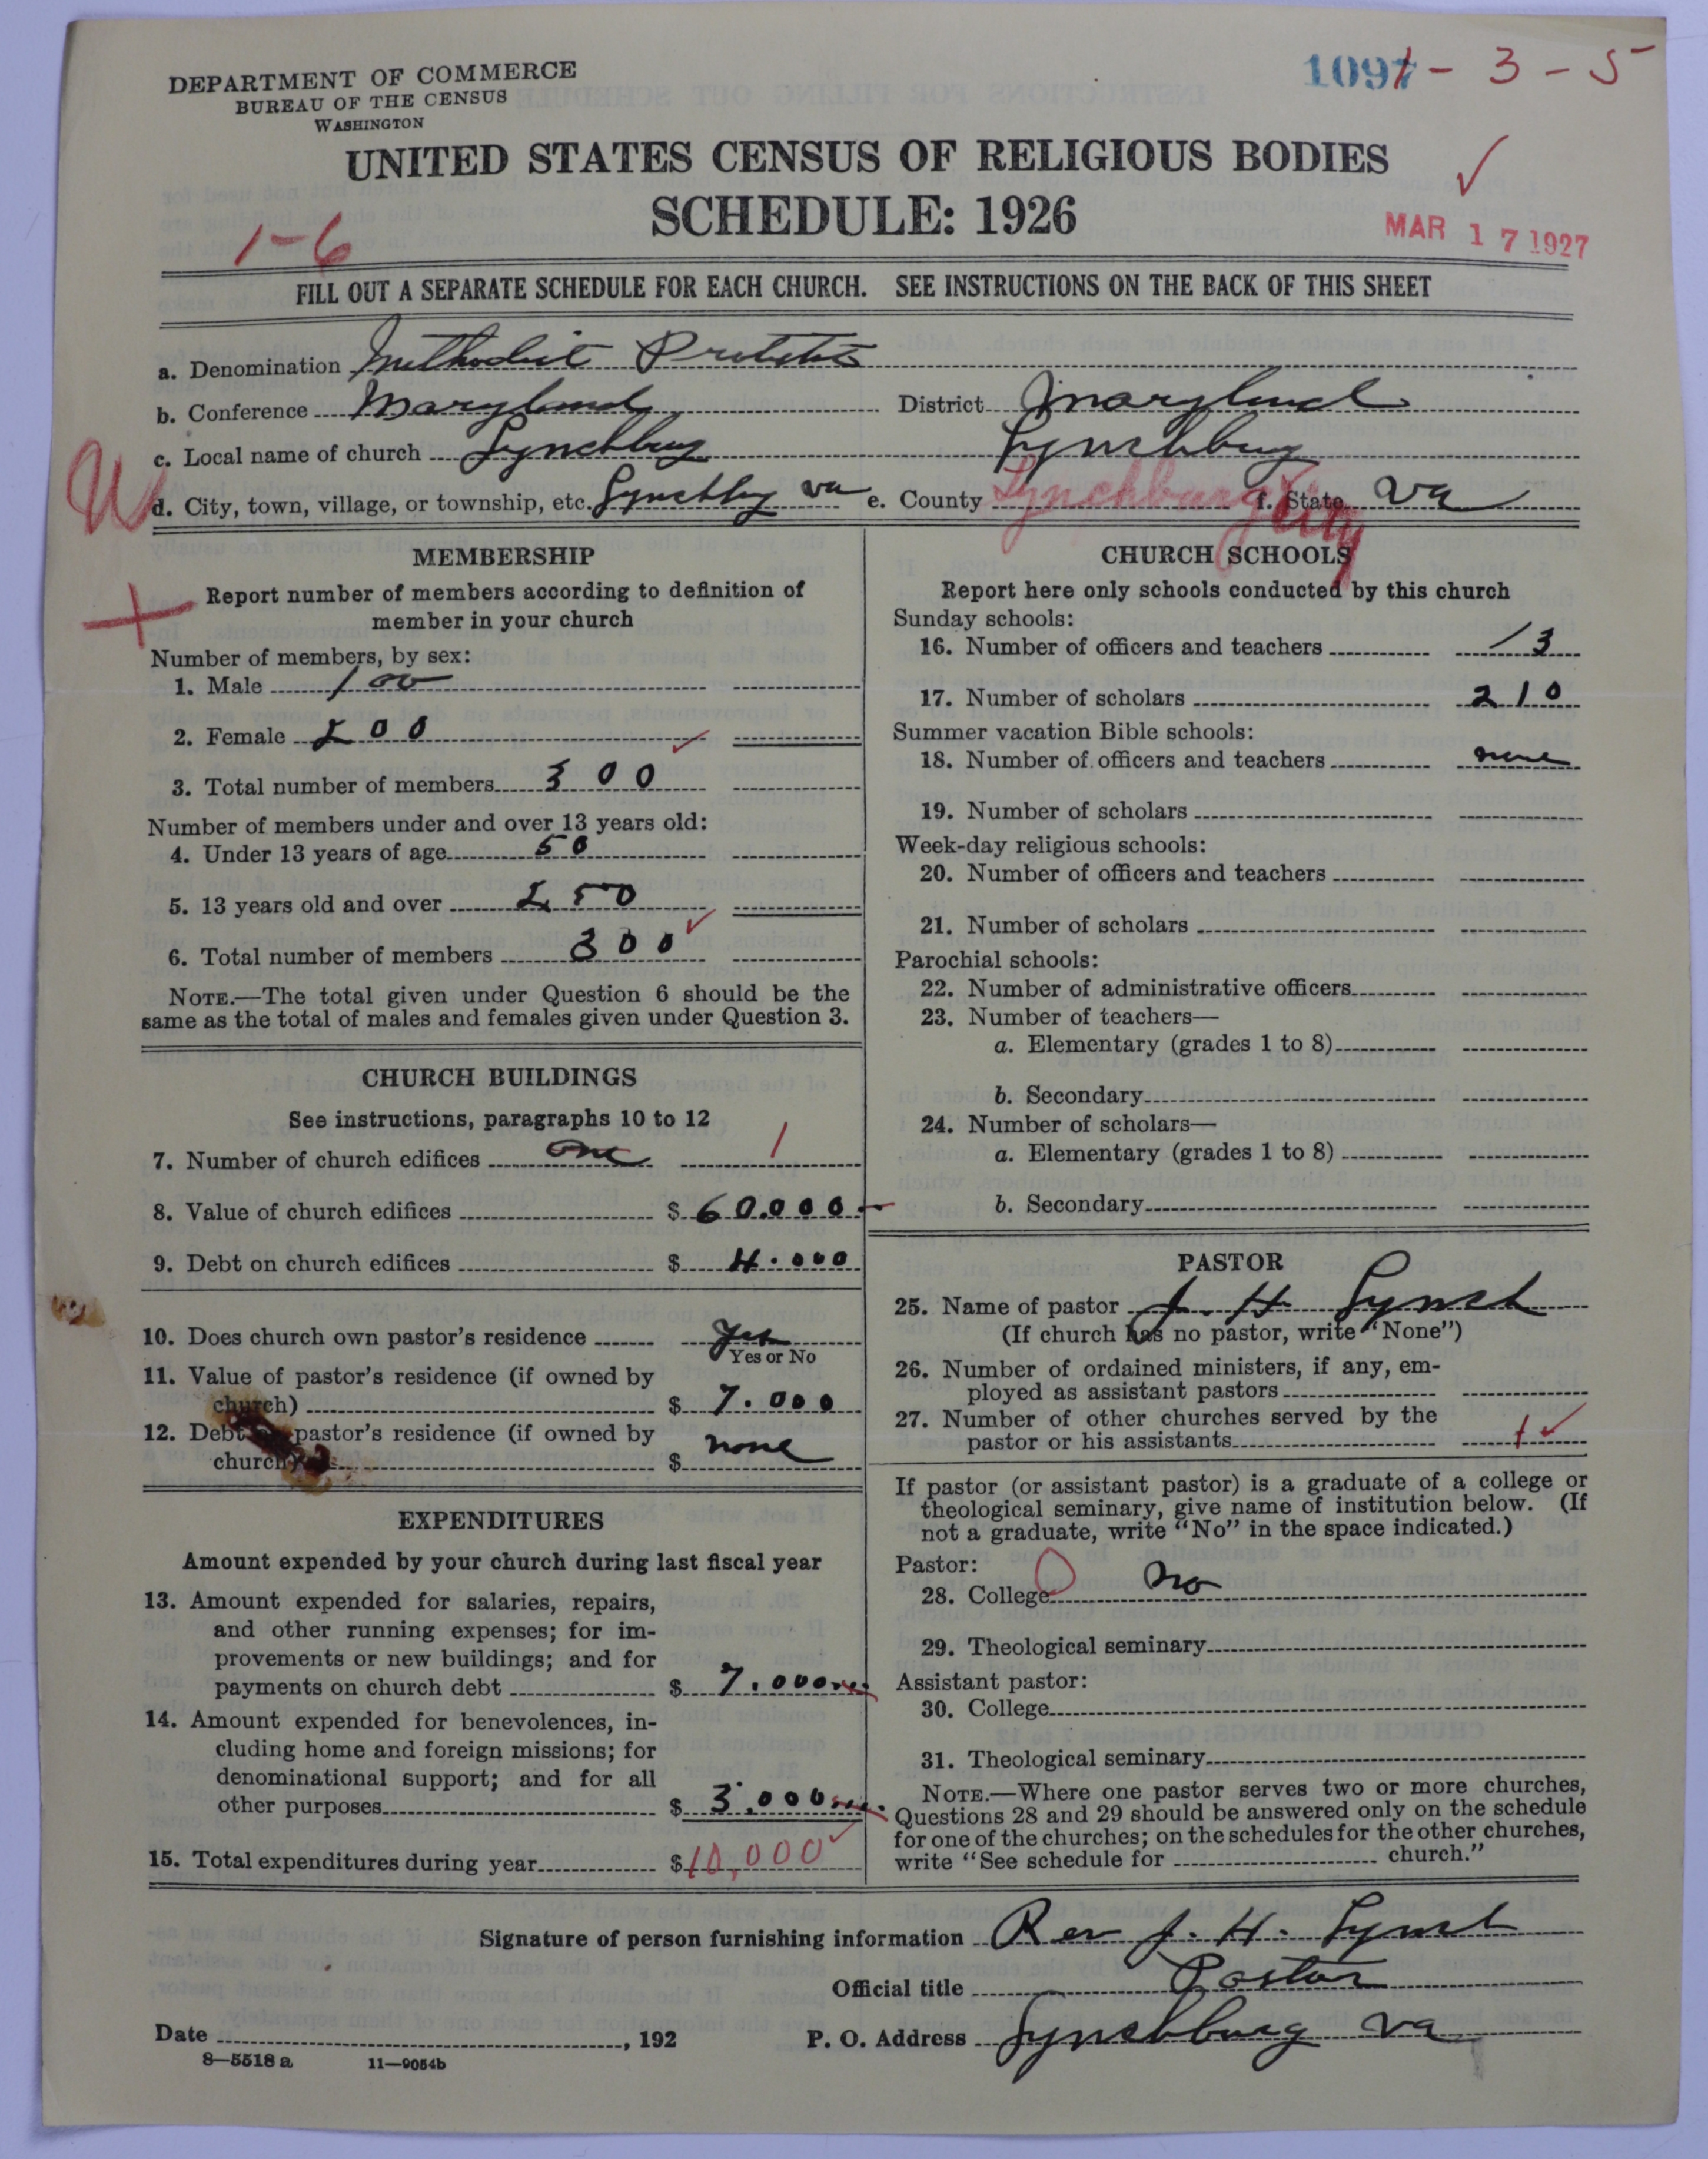 DEPARTMENT OF COMMERCE
BUREAU OF THE CENSUS
WASHINGTON
1097 - 3 - 5
UNITED STATES CENSUS OF RELIGIOUS BODIES
SCHEDULE: 1926
1-6
MAR 17 1927
FILL OUT A SEPARATE SCHEDULE FOR EACH CHURCH. SEE INSTRUCTIONS ON THE BACK OF THIS SHEET
a. Denomination Methodist Protestant
b. Conference Maryland District Maryland
c. Local name of church Lynchburg Lynchburg
W
d. City, town, village, or township, etc. Lynchburg Va e. County Lynchburg City f. State Va
MEMBERSHIP
Report number of members according to definition of
member in your church
Number of members, by sex:
1. Male 100
2. Female 200
3. Total number of members 300
Number of members under and over 13 years old:
4. Under 13 years of age 50
5. 13 years old and over 250
6. Total number of members 300
NOTE.—The total given under Question 6 should be the
same as the total of males and females given under Question 3.
CHURCH BUILDINGS
See instructions, paragraphs 10 to 12
7. Number of church edifices one 1
8. Value of church edifices $ 60.000
9. Debt on church edifices $ 4.000
10. Does church own pastor's residence Yes
Yes or No
11. Value of pastor's residence (if owned by
church) $ 7.000
12. Debt pastor's residence (if owned by
church) $ none
EXPENDITURES
Amount expended by your church during last fiscal year
13. Amount expended for salaries, repairs,
and other running expenses; for im-
provements or new buildings; and for
payments on church debt $ 7.000
14. Amount expended for benevolences, in-
cluding home and foreign missions; for
denominational support; and for all
other purposes $ 3.000
15. Total expenditures during year $10,000
CHURCH SCHOOLS
Report here only schools conducted by this church
Sunday schools:
16. Number of officers and teachers 13
17. Number of scholars 210
Summer vacation Bible schools:
18. Number of officers and teachers none
19. Number of scholars
Week-day religious schools:
20. Number of officers and teachers
21. Number of scholars
Parochial schools:
22. Number of administrative officers
23. Number of teachers—
a. Elementary (grades 1 to 8)
b. Secondary
24. Number of scholars—
a. Elementary (grades 1 to 8)
b. Secondary
PASTOR
25. Name of pastor J. H. Lynch
(If church has no pastor, write "None")
26. Number of ordained ministers, if any, em-
ployed as assistant pastors
27. Number of other churches served by the
pastor or his assistants 1
If pastor (or assistant pastor) is a graduate of a college or
theological seminary, give name of institution below. (If
not a graduate, write "No" in the space indicated.)
Pastor:
28. College No
29. Theological seminary
Assistant pastor:
30. College
31. Theological seminary
NOTE.—Where one pastor serves two or more churches,
Questions 28 and 29 should be answered only on the schedule
for one of the churches; on the schedules for the other churches,
write "See schedule for church."
Signature of person furnishing information Rev J. H. Lynch
Official title Pastor
Date , 192 P. O. Address Lynchburg Va
8—5518 a 11—9054b